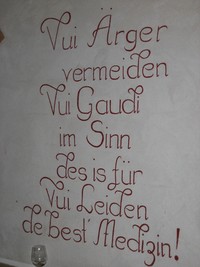 Vui Ärger
vermeiden
Vui Gaudi
im Sinn
des is für
Vui Leiden
de best' Medizin!